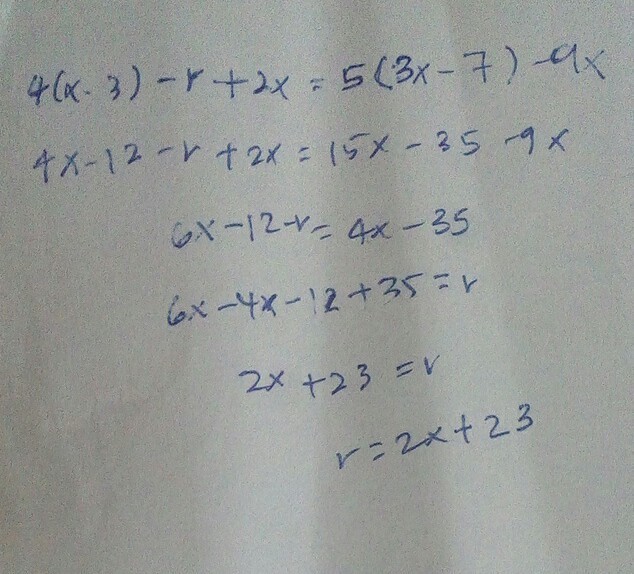 4(x-3) - r + 2x = 5(3x-7) - 9x
4x-12 - r + 2x = 15x - 35 - 9x
6x-12-r = 4x - 35
6x-4x-12+35 = r
2x + 23 = r
r = 2x + 23